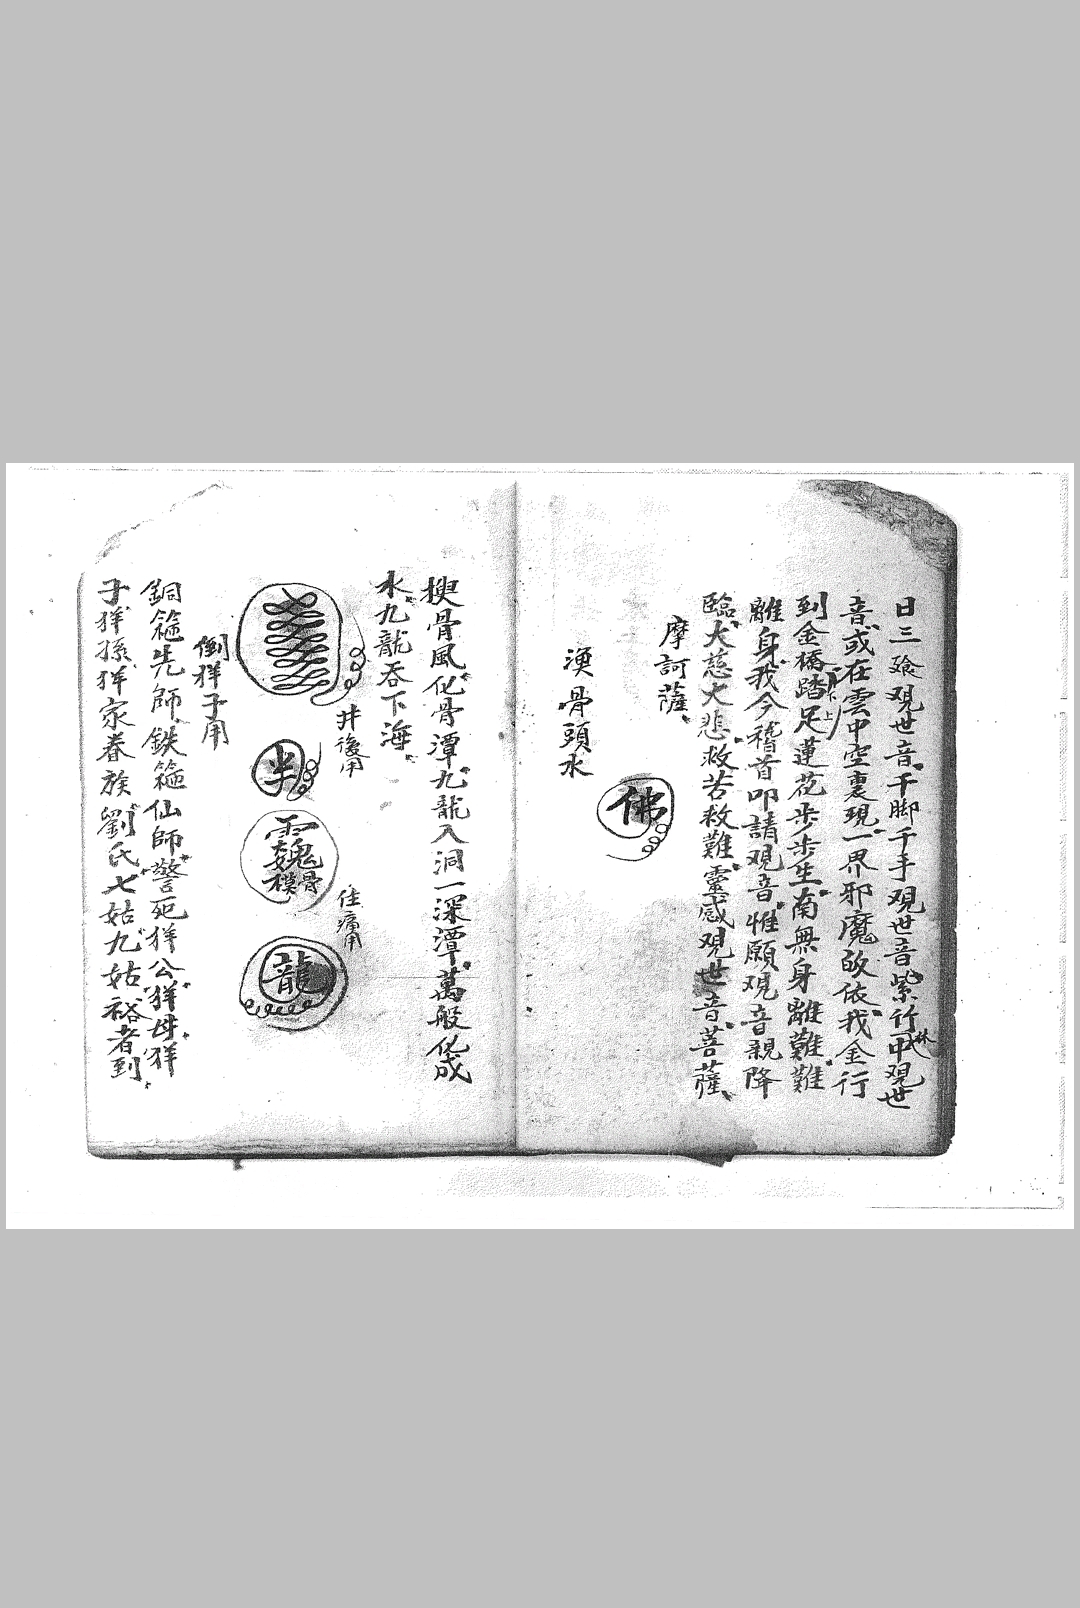 日三飱觀世音千脚千手觀世音紫竹林中觀世
音或在雲中空裏現一界邪魔敀依我金行
到金橋踏足蓮花步步生南無身離難難
離身我今稽首叩請覌音惟願覌音親降
臨大慈大悲救苦救難靈感覌世音菩薩
摩訶薩
漁骨頭水
佛
搜骨風化骨潭九龍入洞一深潭萬般化成
水九龍吞下海
井後用
半
魏骨
住痛用
龍
倒祥子用
銅箍先師鉄箍仙師警死祥公祥母祥
子祥孫祥家眷族劉氏七姑九姑裕者到